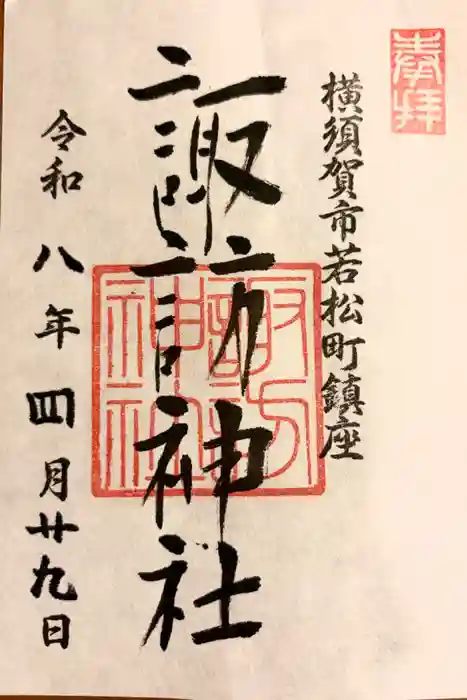 奉拝
横須賀市若松町鎮座
諏訪神社
諏訪神社
令和八年四月廿九日